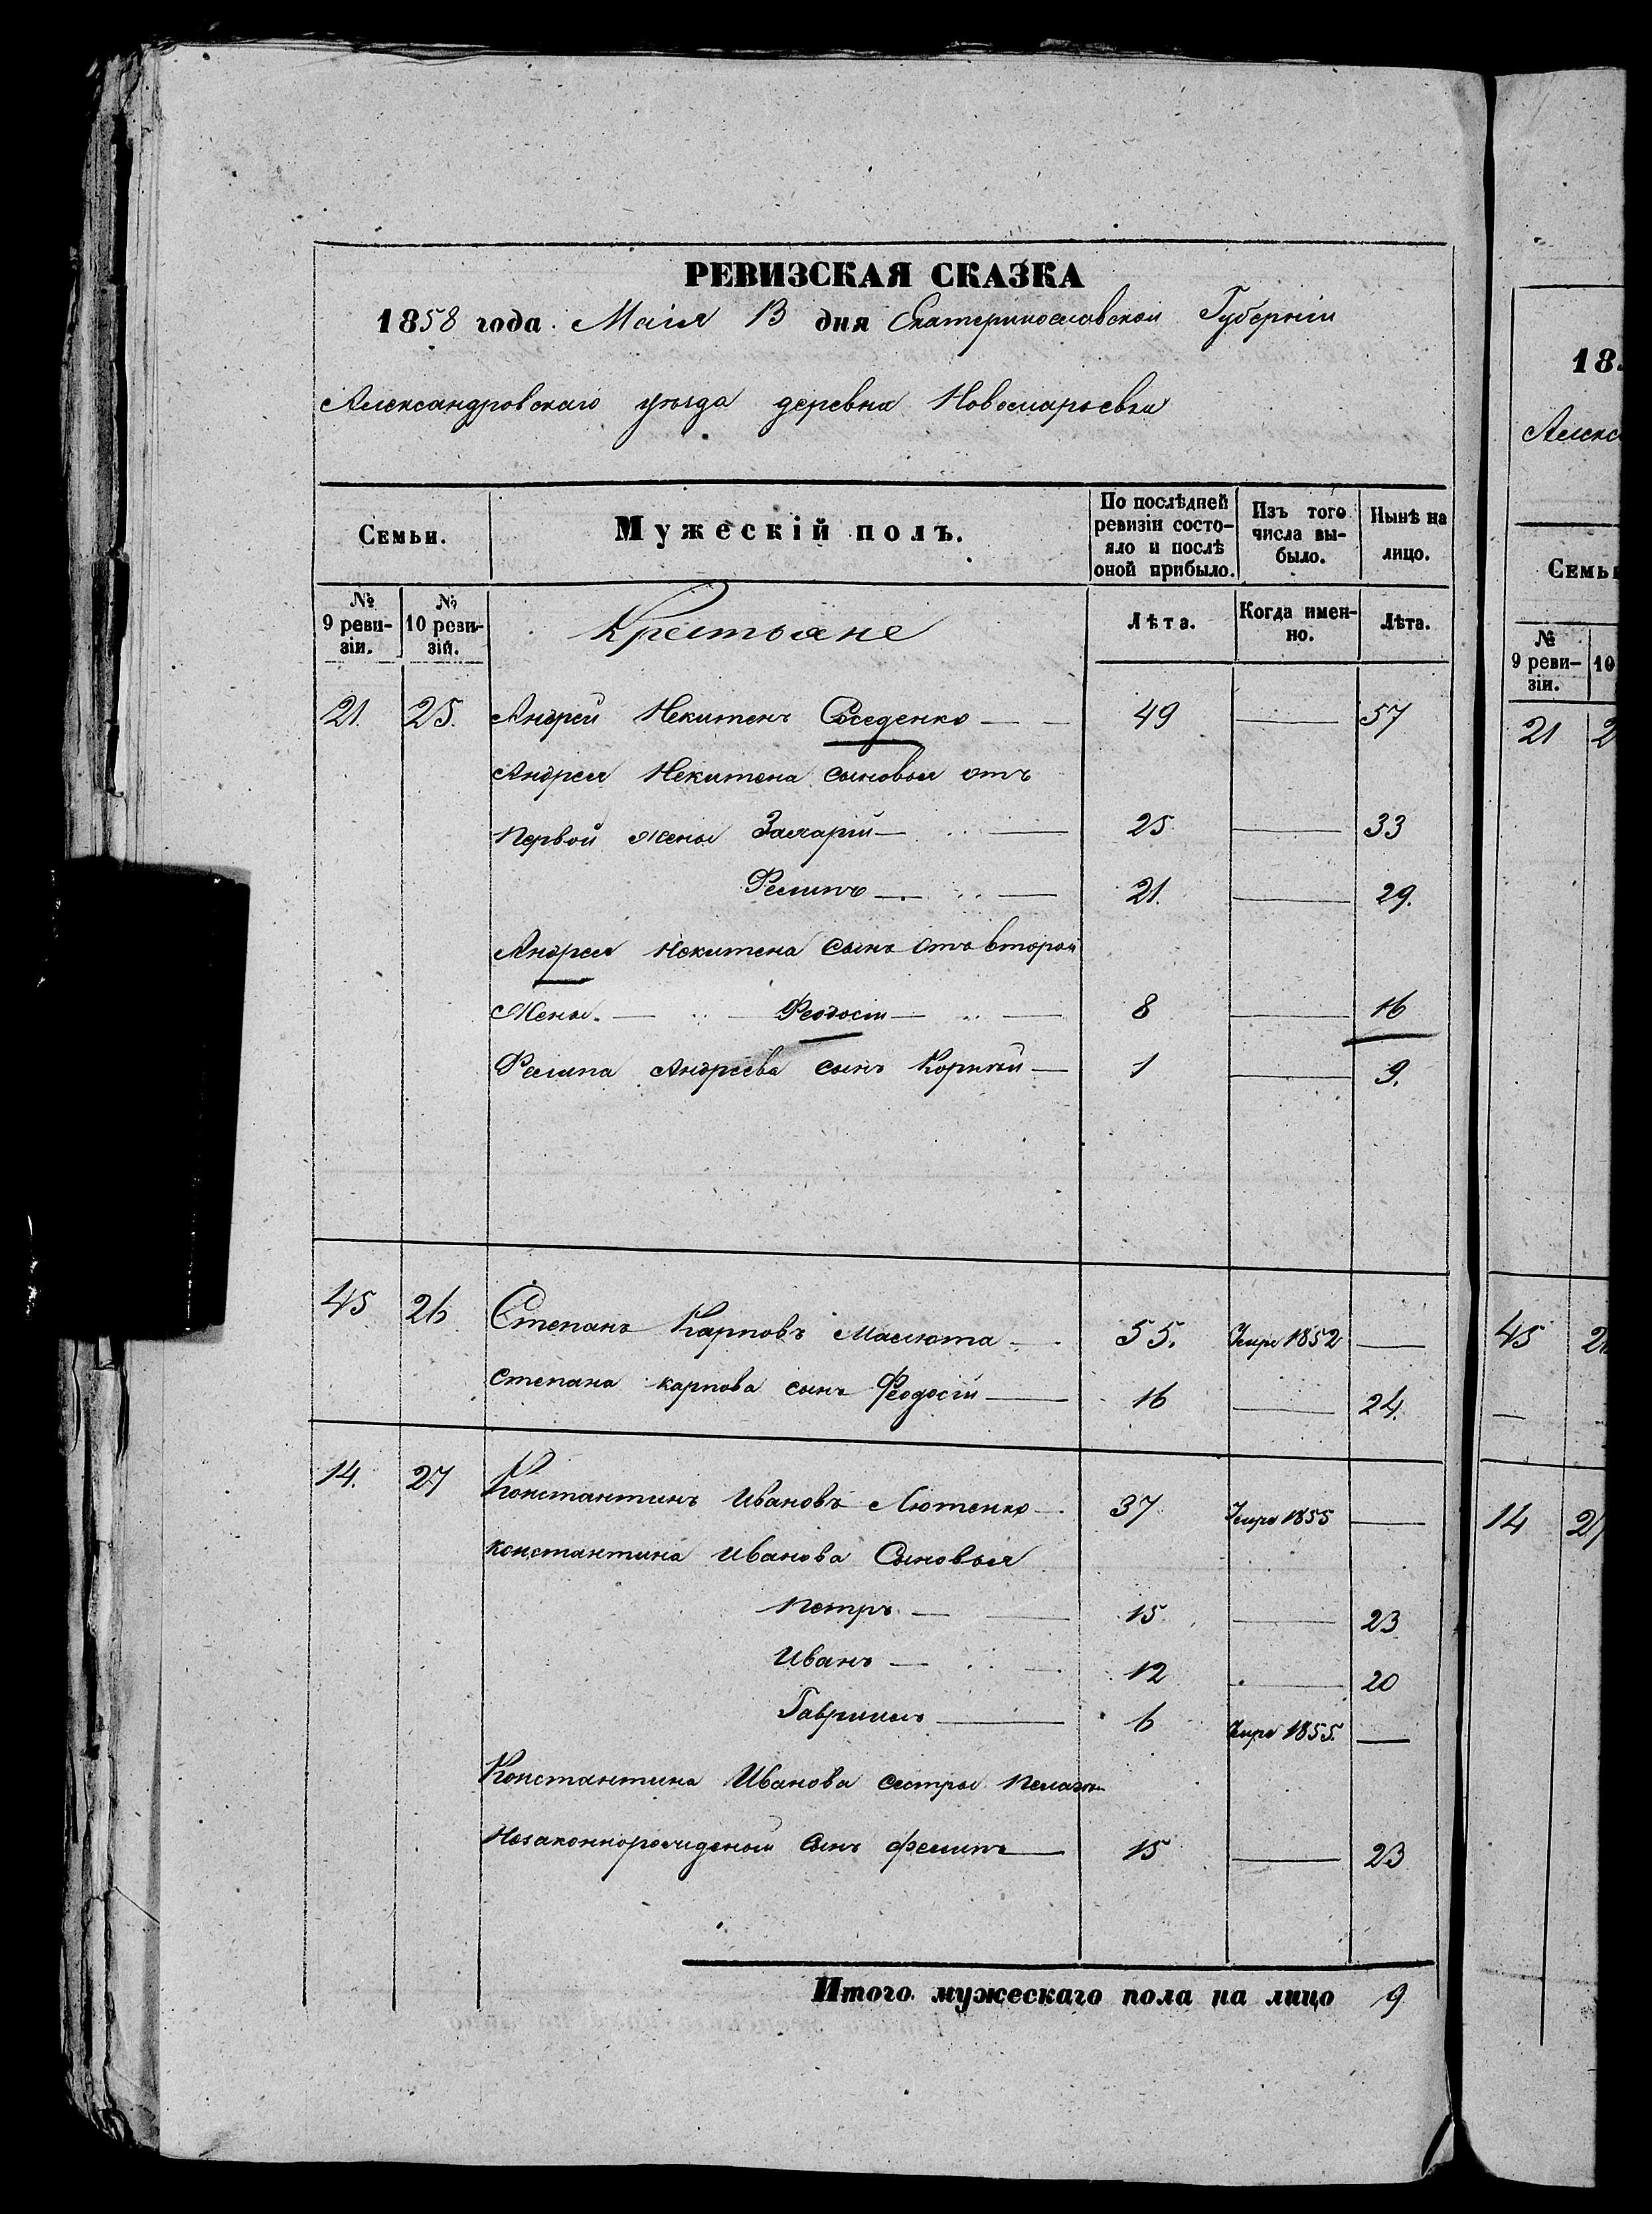 РЕВИЗСКАЯ СКАЗКА
1858 года Маія 13 дня Екатеринославской Губерніи
Александровскаго уѣзда деревна Новомарьевка
Семьи. Мужескій полъ. По послѣдней ревизіи состояло и послѣ оной прибыло. Изъ того числа выбыло. Нынѣ на лицо.
№ 9 ревизіи. № 10 ревизій. Крестьяне Лѣта. Когда именно. Лѣта.
21. 25. Андрей Никитенъ Соседенко 49 57
Андрея Никитена сыновья отъ
Первой жены Захарій 25 33
Филипъ 21. 29.
Андрея Никитена сынъ отъ второй
Жены. Феодосій 8 16
Филипа Андреева сынъ Корнѣй 1 9.
45 26 Степанъ Карповъ Масюта 55. Умре 1852
Степана карпова сынъ Феодосій 16 24.
14. 27 Константинъ Ивановъ Лютенко 37 Умре 1855
константина Иванова Сыновья
Петръ 15 23
Иванъ 12 20
Гавриилъ 6 Умре 1855.
Константина Иванова сестры Пелагеи
Незаконнорожденый Сынъ филипъ 15 23
Итого мужескаго пола на лицо 9
18
Алекс
Семьи
№ 9 ревизіи. 10
21 2
45 2
14 27